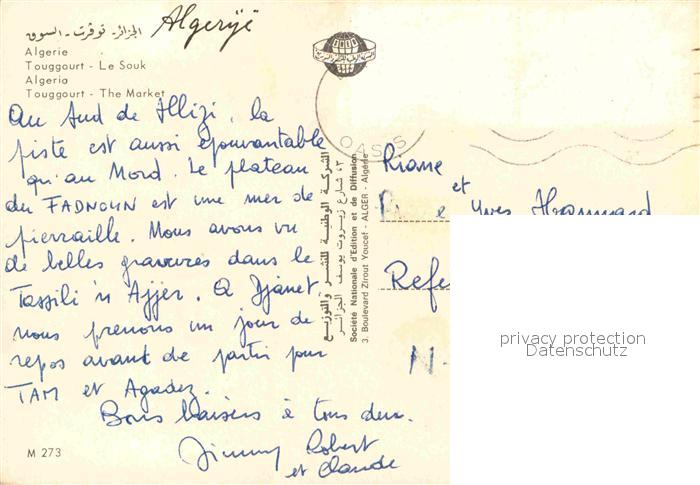 الجزائر - توقرت - السوق
Algerijë
Algerie
Touggourt - Le Souk
Algeria
Touggourt - The Market
Au Sud de Illizi, la
piste est aussi épouvantable
qu'au Nord. Le plateau
du FADNOUN est une mer de
pierraille. Nous avons vu
de belles gravures dans le
Tassili n Ajjer. A Djanet
nous prenons un jour de
repos avant de partir pour
TAM et Agadez.
Bons baisers à tous deux.
Jimmy Robert
et Claude
M 273
OASIS
الشركة الوطنية للنشر والتوزيع
٤٣ شارع زيروت يوسف الجزائر
Société Nationale d'Edition et de Diffusion
3. Boulevard Zirout Youcef - ALGER - Algérie
et
Yves
Refe
N-
privacy protection
Datenschutz